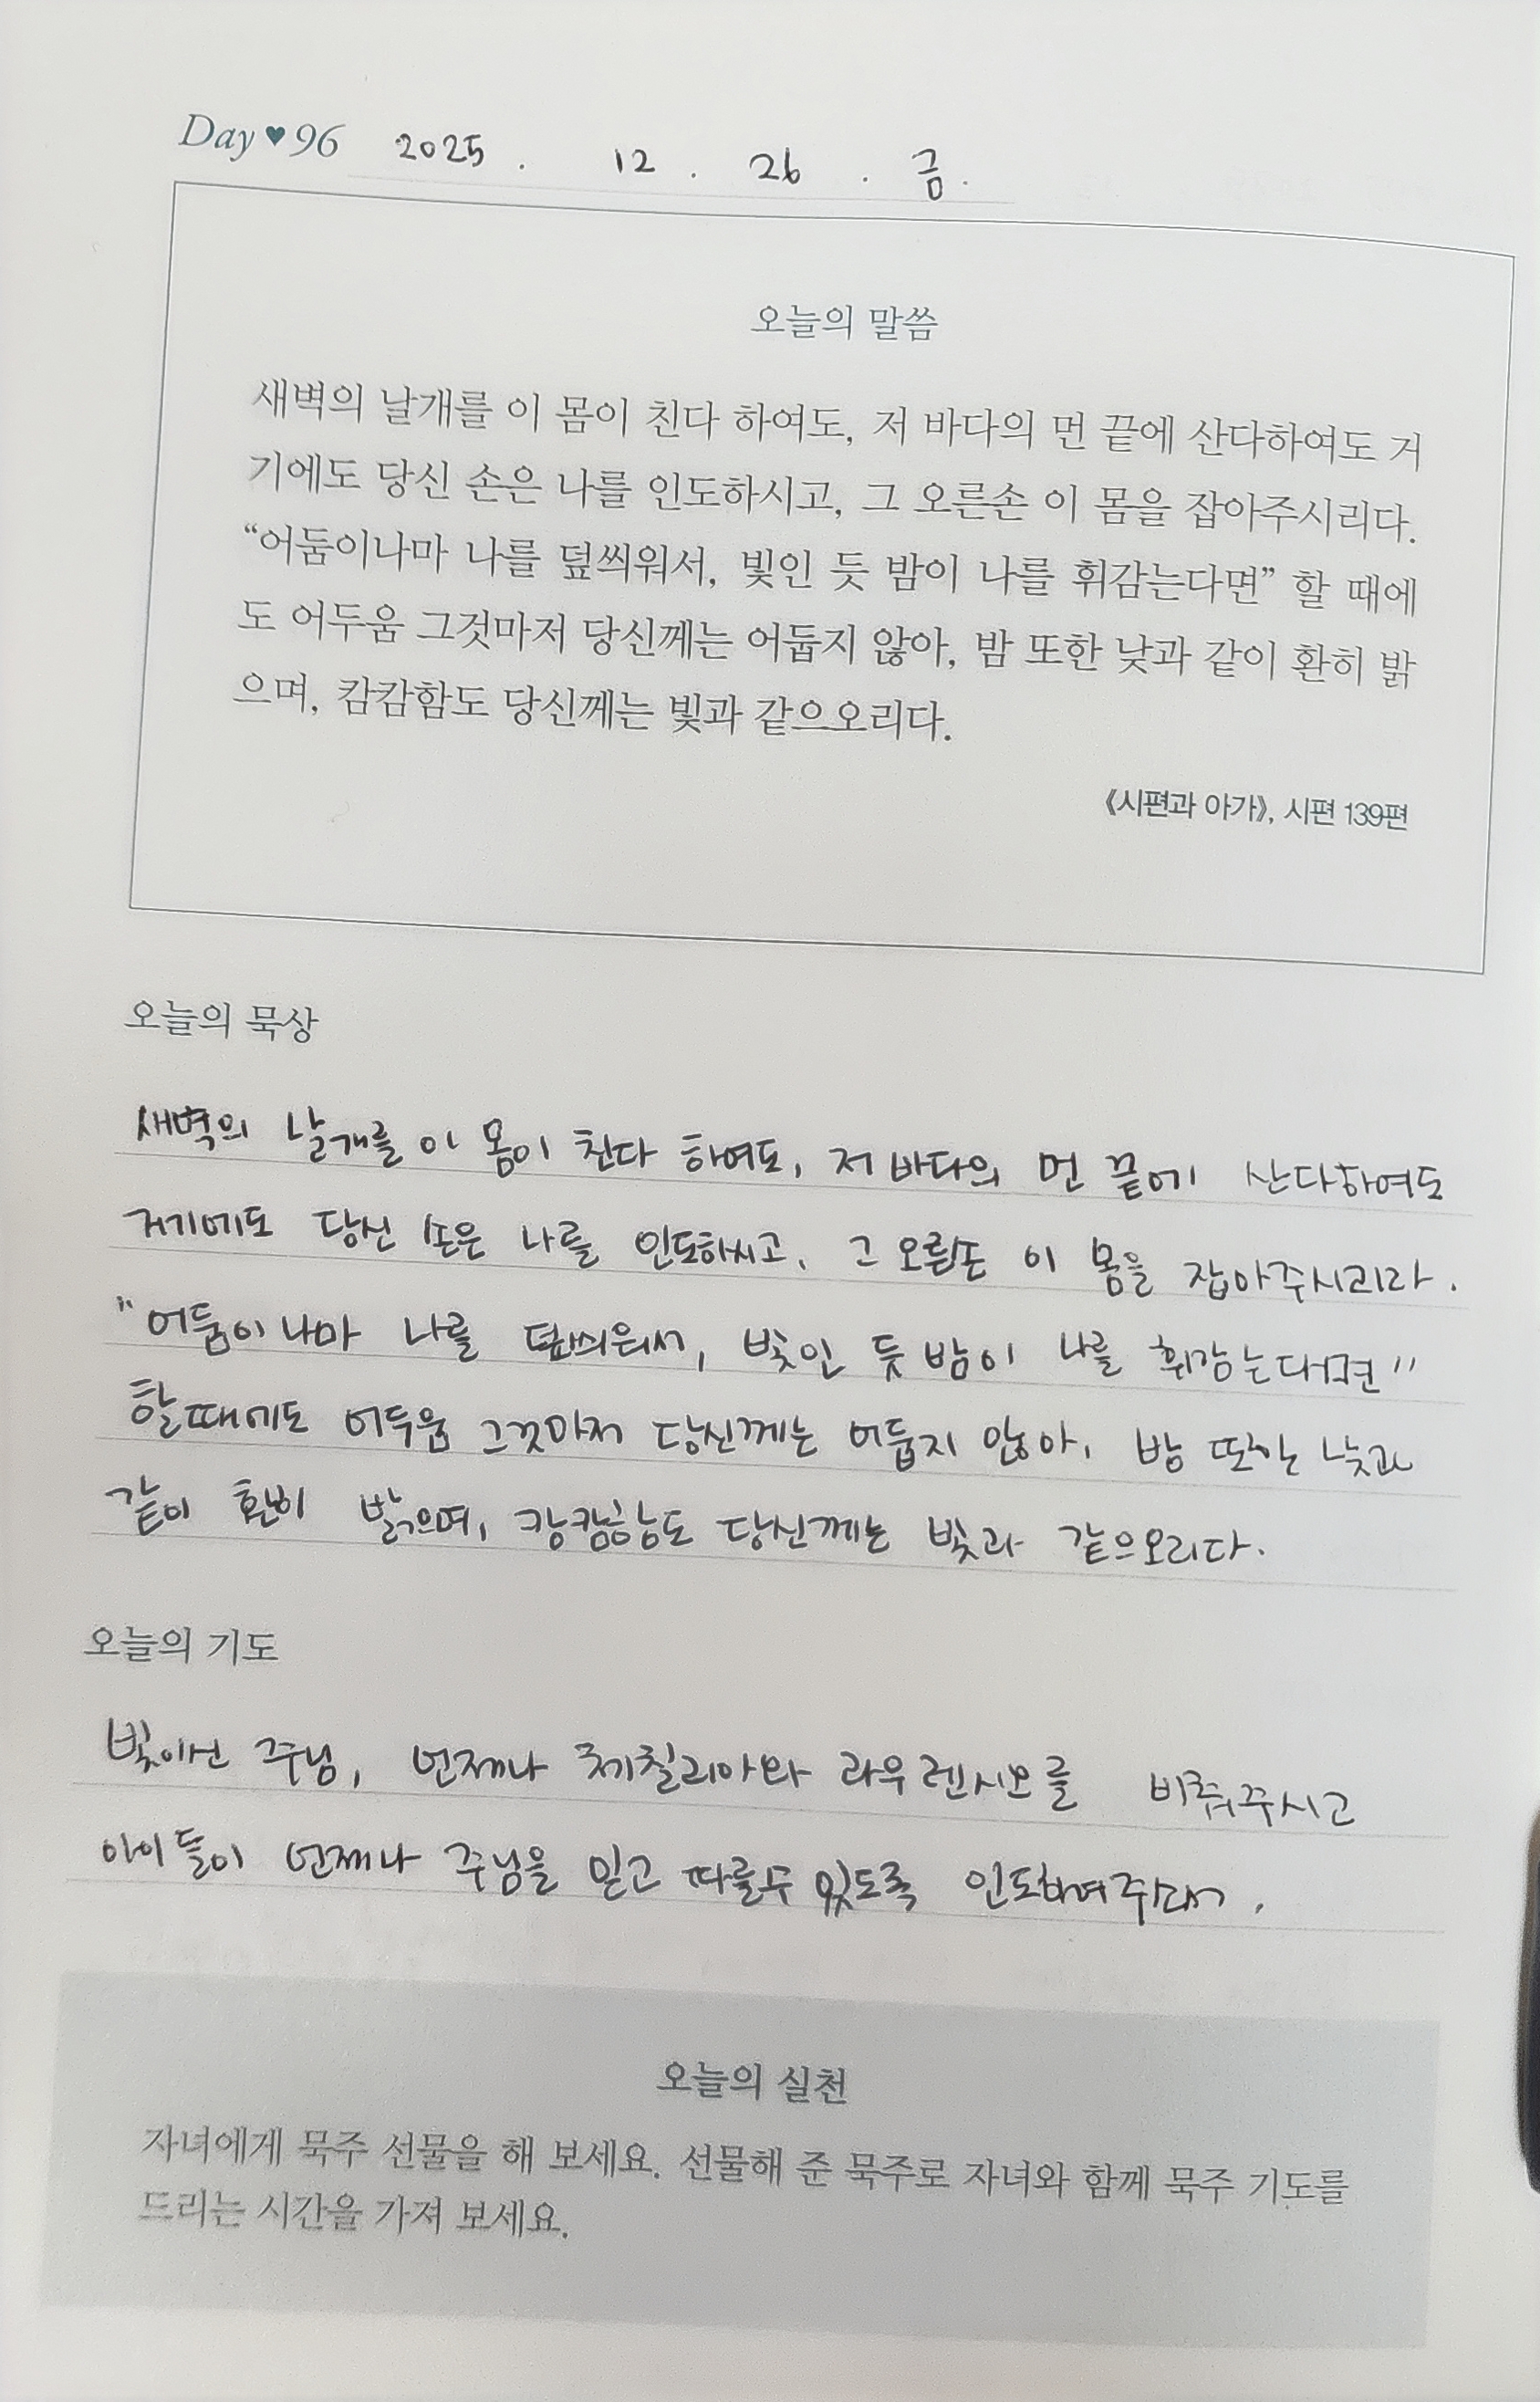 Day ♥ 96 2025 . 12 . 26 . 금.
오늘의 말씀
새벽의 날개를 이 몸이 친다 하여도, 저 바다의 먼 끝에 산다하여도 거
기에도 당신 손은 나를 인도하시고, 그 오른손 이 몸을 잡아주시리다.
“어둠이나마 나를 덮씌워서, 빛인 듯 밤이 나를 휘감는다면” 할 때에
도 어두움 그것마저 당신께는 어둡지 않아, 밤 또한 낮과 같이 환히 밝
으며, 캄캄함도 당신께는 빛과 같으오리다.
《시편과 아가》, 시편 139편
오늘의 묵상
새벽의 날개를 이 몸이 친다 하여도, 저 바다의 먼 끝에 산다하여도
거기에도 당신 손은 나를 인도하시고, 그 오른손 이 몸을 잡아주시리라.
"어둠이나마 나를 덮씌워서, 빛인 듯 밤이 나를 휘감는다면"
할때에도 어두움 그것마저 당신께는 어둡지 않아, 밤 또한 낮과
같이 환히 밝으며, 캄캄함도 당신께는 빛과 같으오리다.
오늘의 기도
빛이신 주님, 언제나 체칠리아와 라우렌시오를 비춰주시고
아이들이 언제나 주님을 믿고 따를수 있도록 인도하여주소서.
오늘의 실천
자녀에게 묵주 선물을 해 보세요. 선물해 준 묵주로 자녀와 함께 묵주 기도를
드리는 시간을 가져 보세요.